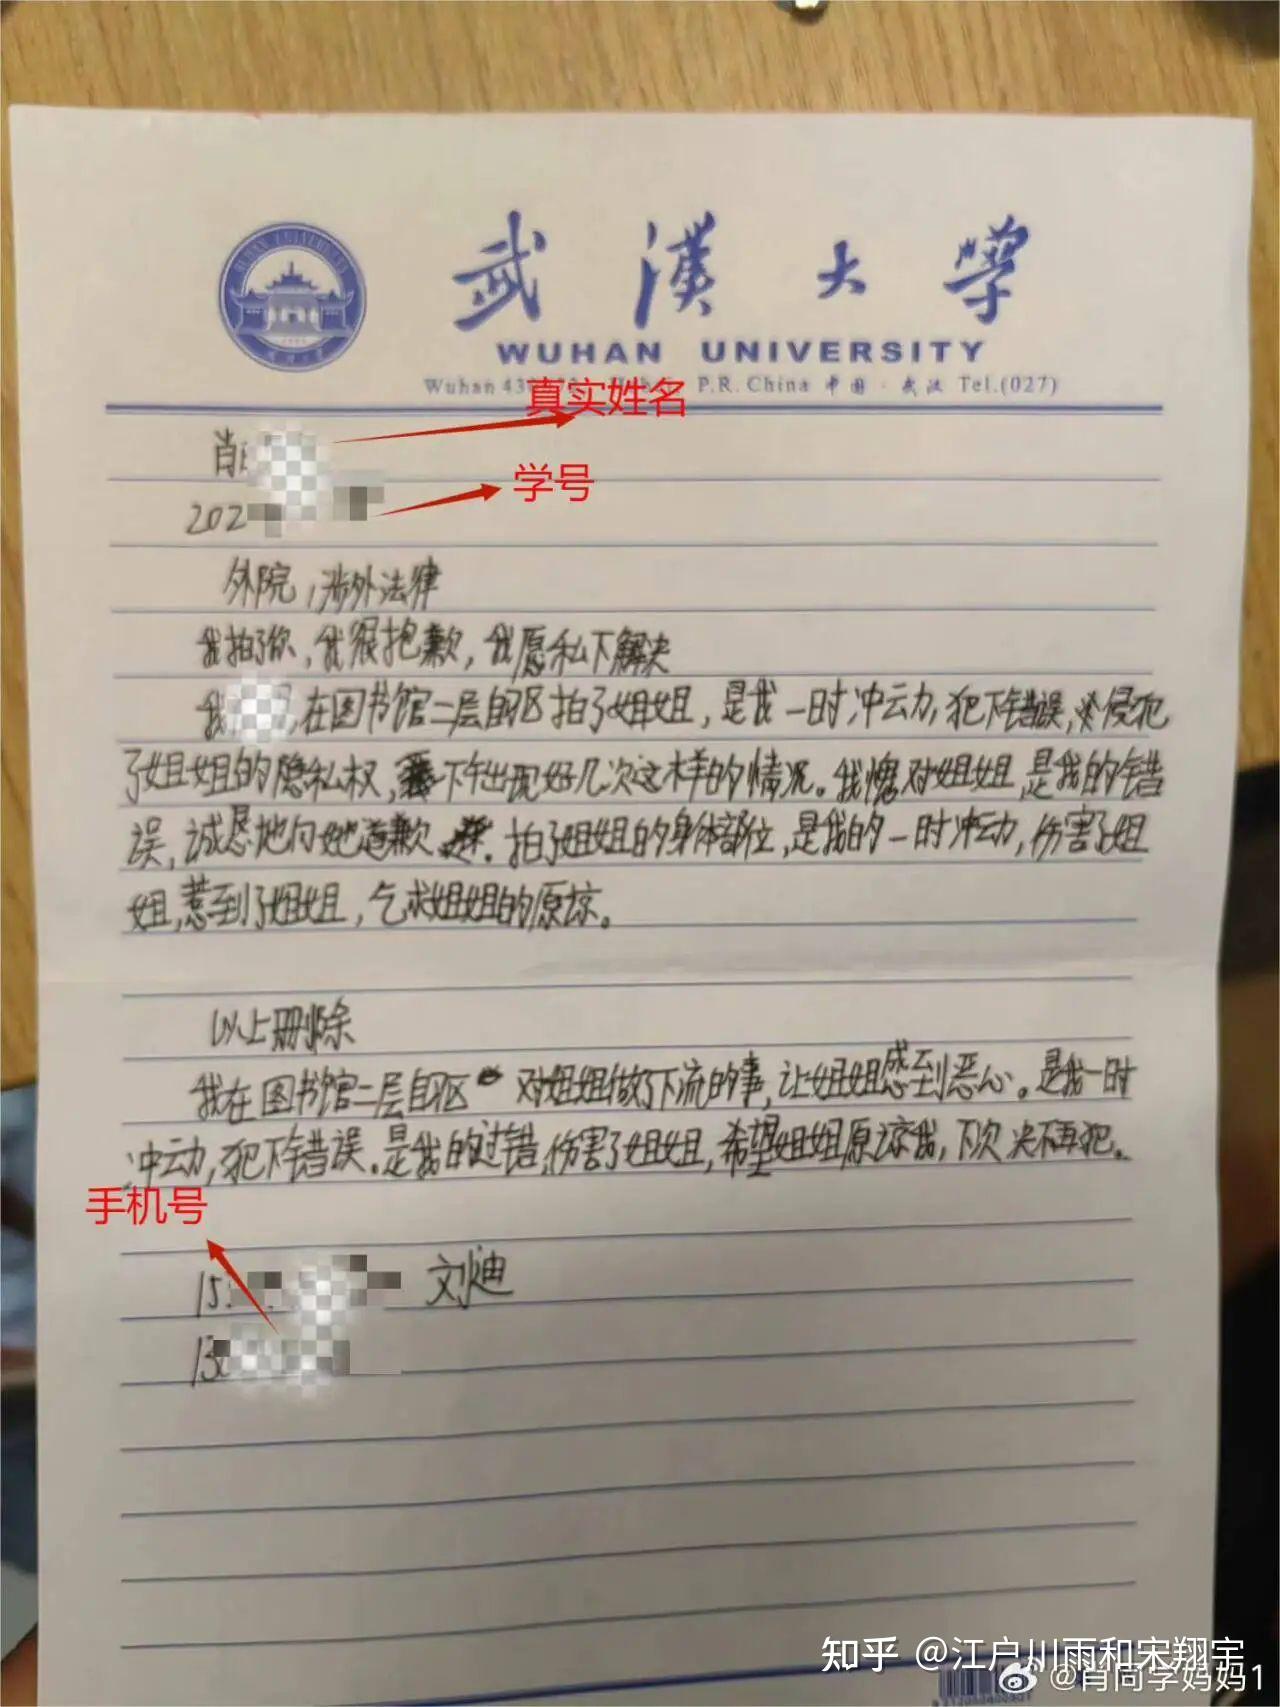 武漢大學
WUHAN UNIVERSITY
Wuhan 43 P.R. China 中国·武汉 Tel.(027)
真实姓名
肖
学号
202
外院,涉外法律
我拍了你,我很抱歉,我愿私下解决
我 ,在图书馆二层自习区拍了姐姐,是我一时冲动,犯下错误,侵犯
了姐姐的隐私权,下午出现好几次这样的情况。我愧对姐姐,是我的错
误,诚恳地向她道歉 。拍了姐姐的身体部位,是我的一时冲动,伤害了姐
姐,惹到了姐姐,乞求姐姐的原谅。
以上删除
我在图书馆二层自习区 对姐姐做了下流的事,让姐姐感到恶心。是我一时
冲动,犯下错误。是我的过错,伤害了姐姐,希望姐姐原谅我,下次决不再犯。
手机号
15 刘迪
13
知乎 @江户川雨和宋翔宇
@肖同学妈妈1